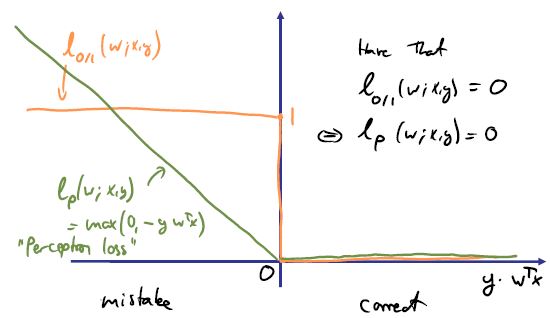 l0/1 (w; x,y)
Have that
l0/1 (w; x,y) = 0
⇔ lp (w; x,y) = 0
1
lp(w; x,y)
= max(0, -y wTx)
"Perceptron loss"
0
y · wTx
mistake
correct